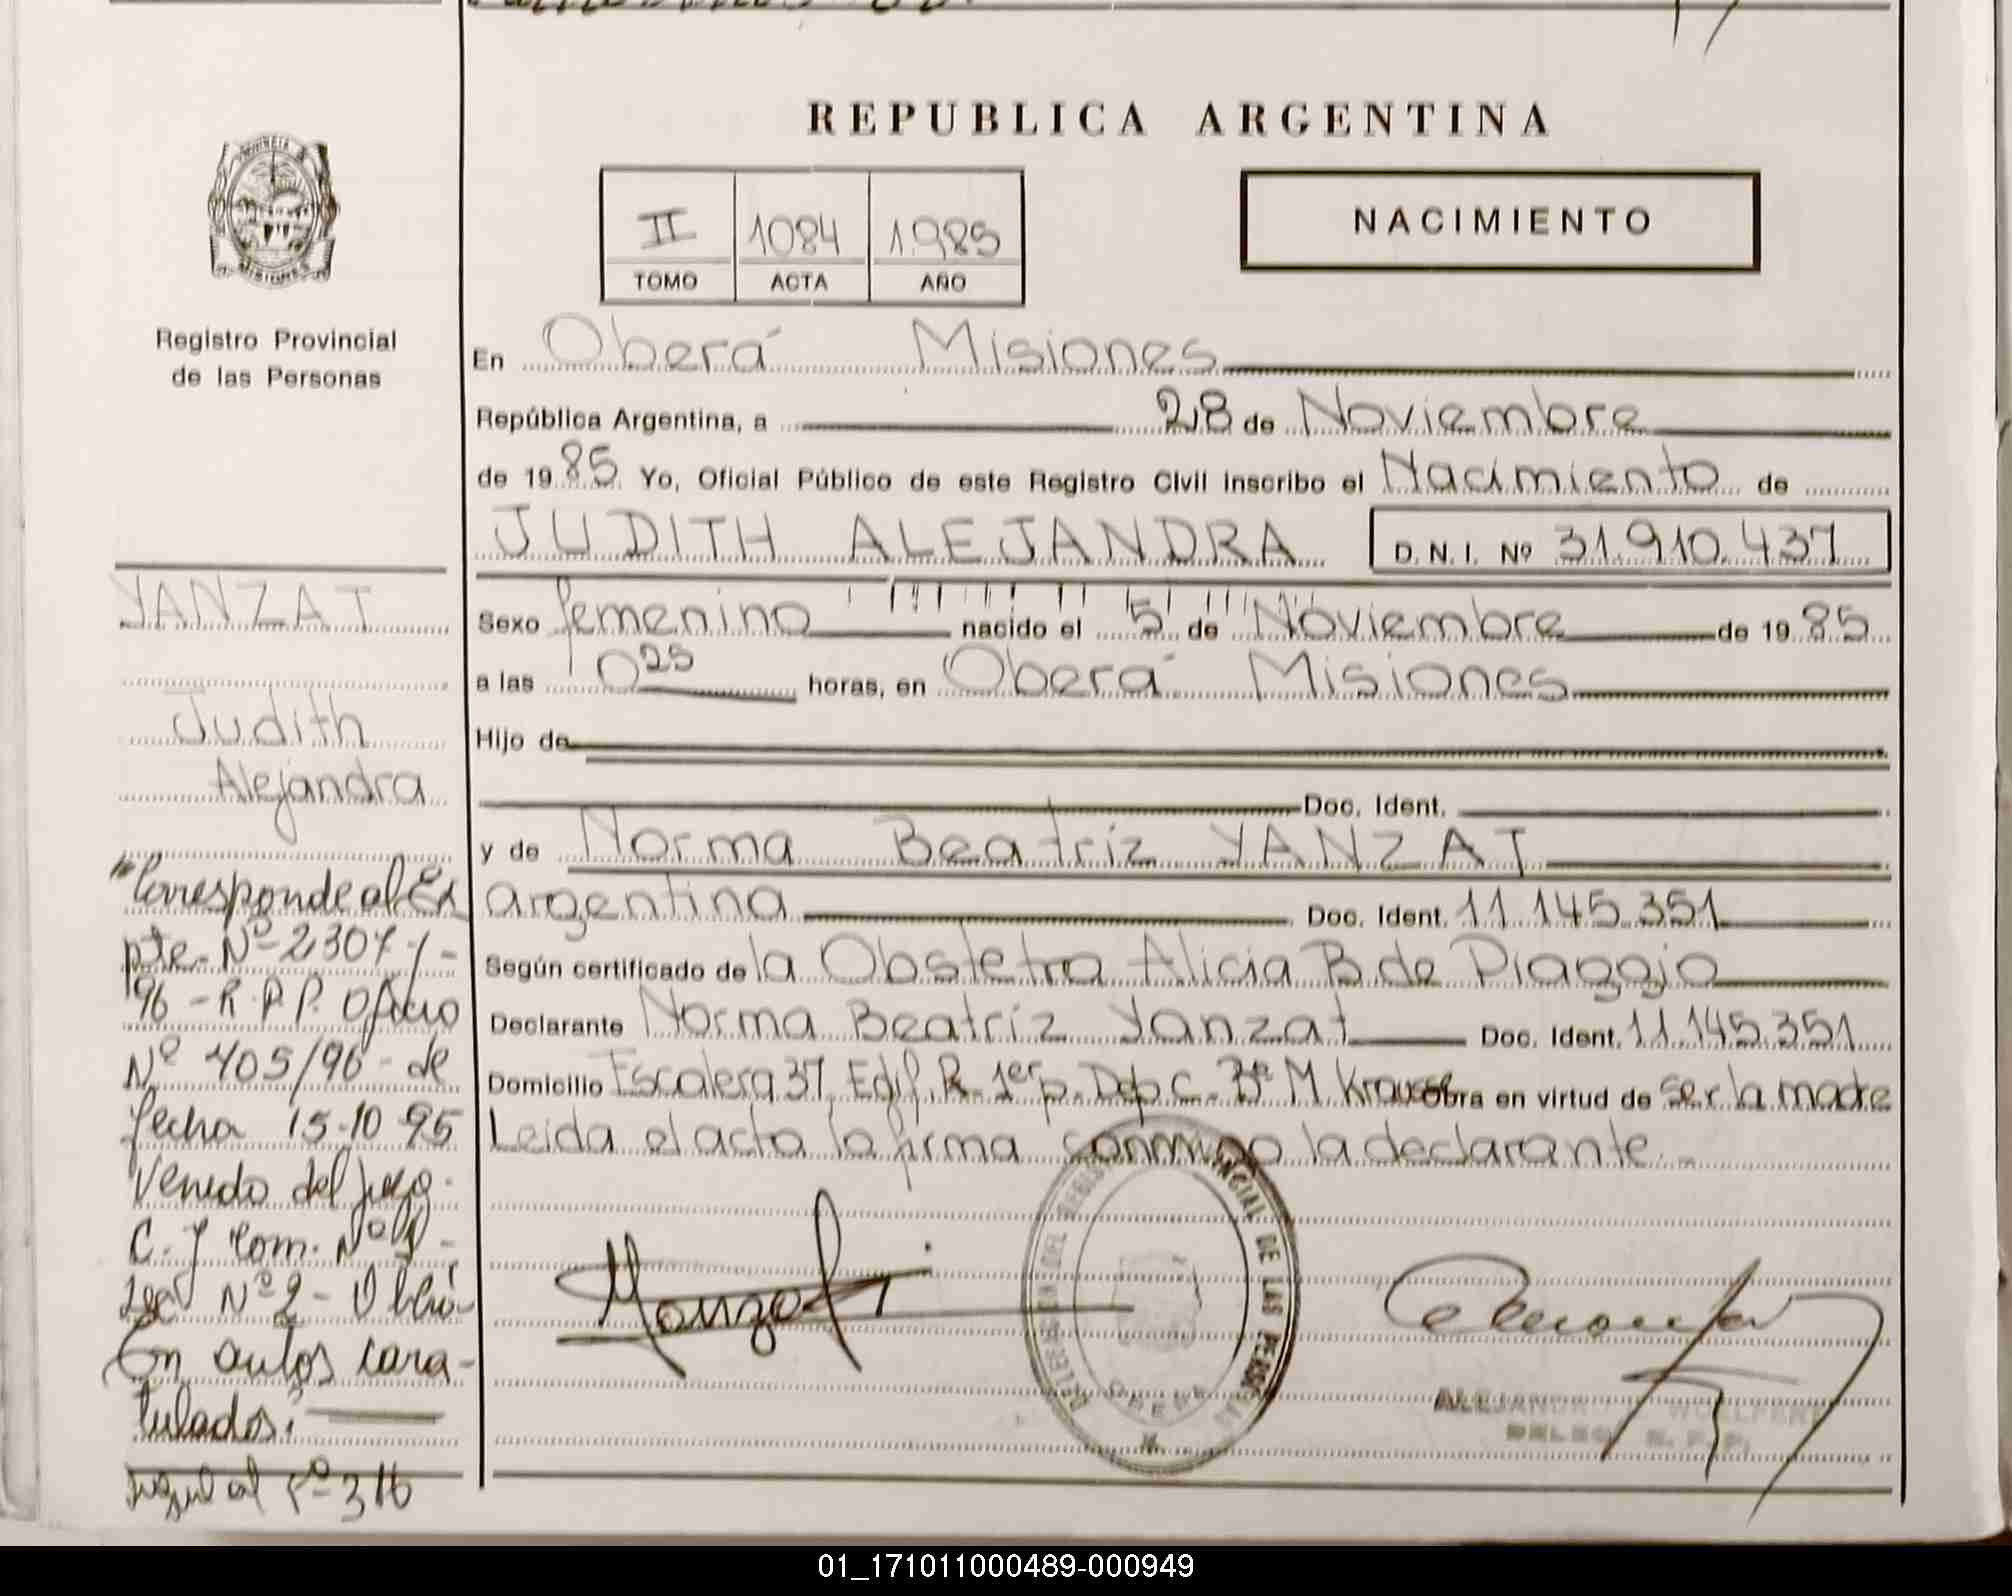 REPUBLICA ARGENTINA
II 1084 1.985
TOMO ACTA AÑO
NACIMIENTO
PROVINCIA
MISIONES
Registro Provincial
de las Personas
En Oberá Misiones
República Argentina, a 28 de Noviembre
de 1985 Yo, Oficial Público de este Registro Civil inscribo el Nacimiento de
JUDITH ALEJANDRA D.N.I. Nº 31.910.437
Sexo femenino nacido el 5 de Noviembre de 1985
a las 0 25 horas, en Oberá Misiones
Hijo de
Doc. Ident.
y de Norma Beatriz YANZAT
argentina Doc. Ident. 11.145.351
Según certificado de la Obstetra Alicia B. de Piaggio
Declarante Norma Beatriz Yanzat Doc. Ident. 11.145.351
Domicilio Escalera 37, Edif. R. 1er p. Dep C. Bº M. Krause Obra en virtud de ser la madre
Leida el acta la firma conmigo la declarante.-
YANZAT
Judith
Alejandra
"Corresponde al Ex
pte- Nº 2307/-
96 - R.P.P. Oficio
Nº 405/96 - de
fecha 15-10-95
Venido del juzg.
C. y Com. Nº
Nº 2 - Oberá-
En autos cara-
tulados:
al Fº 316
DELEGACION DEL REGISTRO PROVINCIAL DE LAS PERSONAS
OBERA
ALEJANDR
DELEG. R. P. P.
01_171011000489-000949